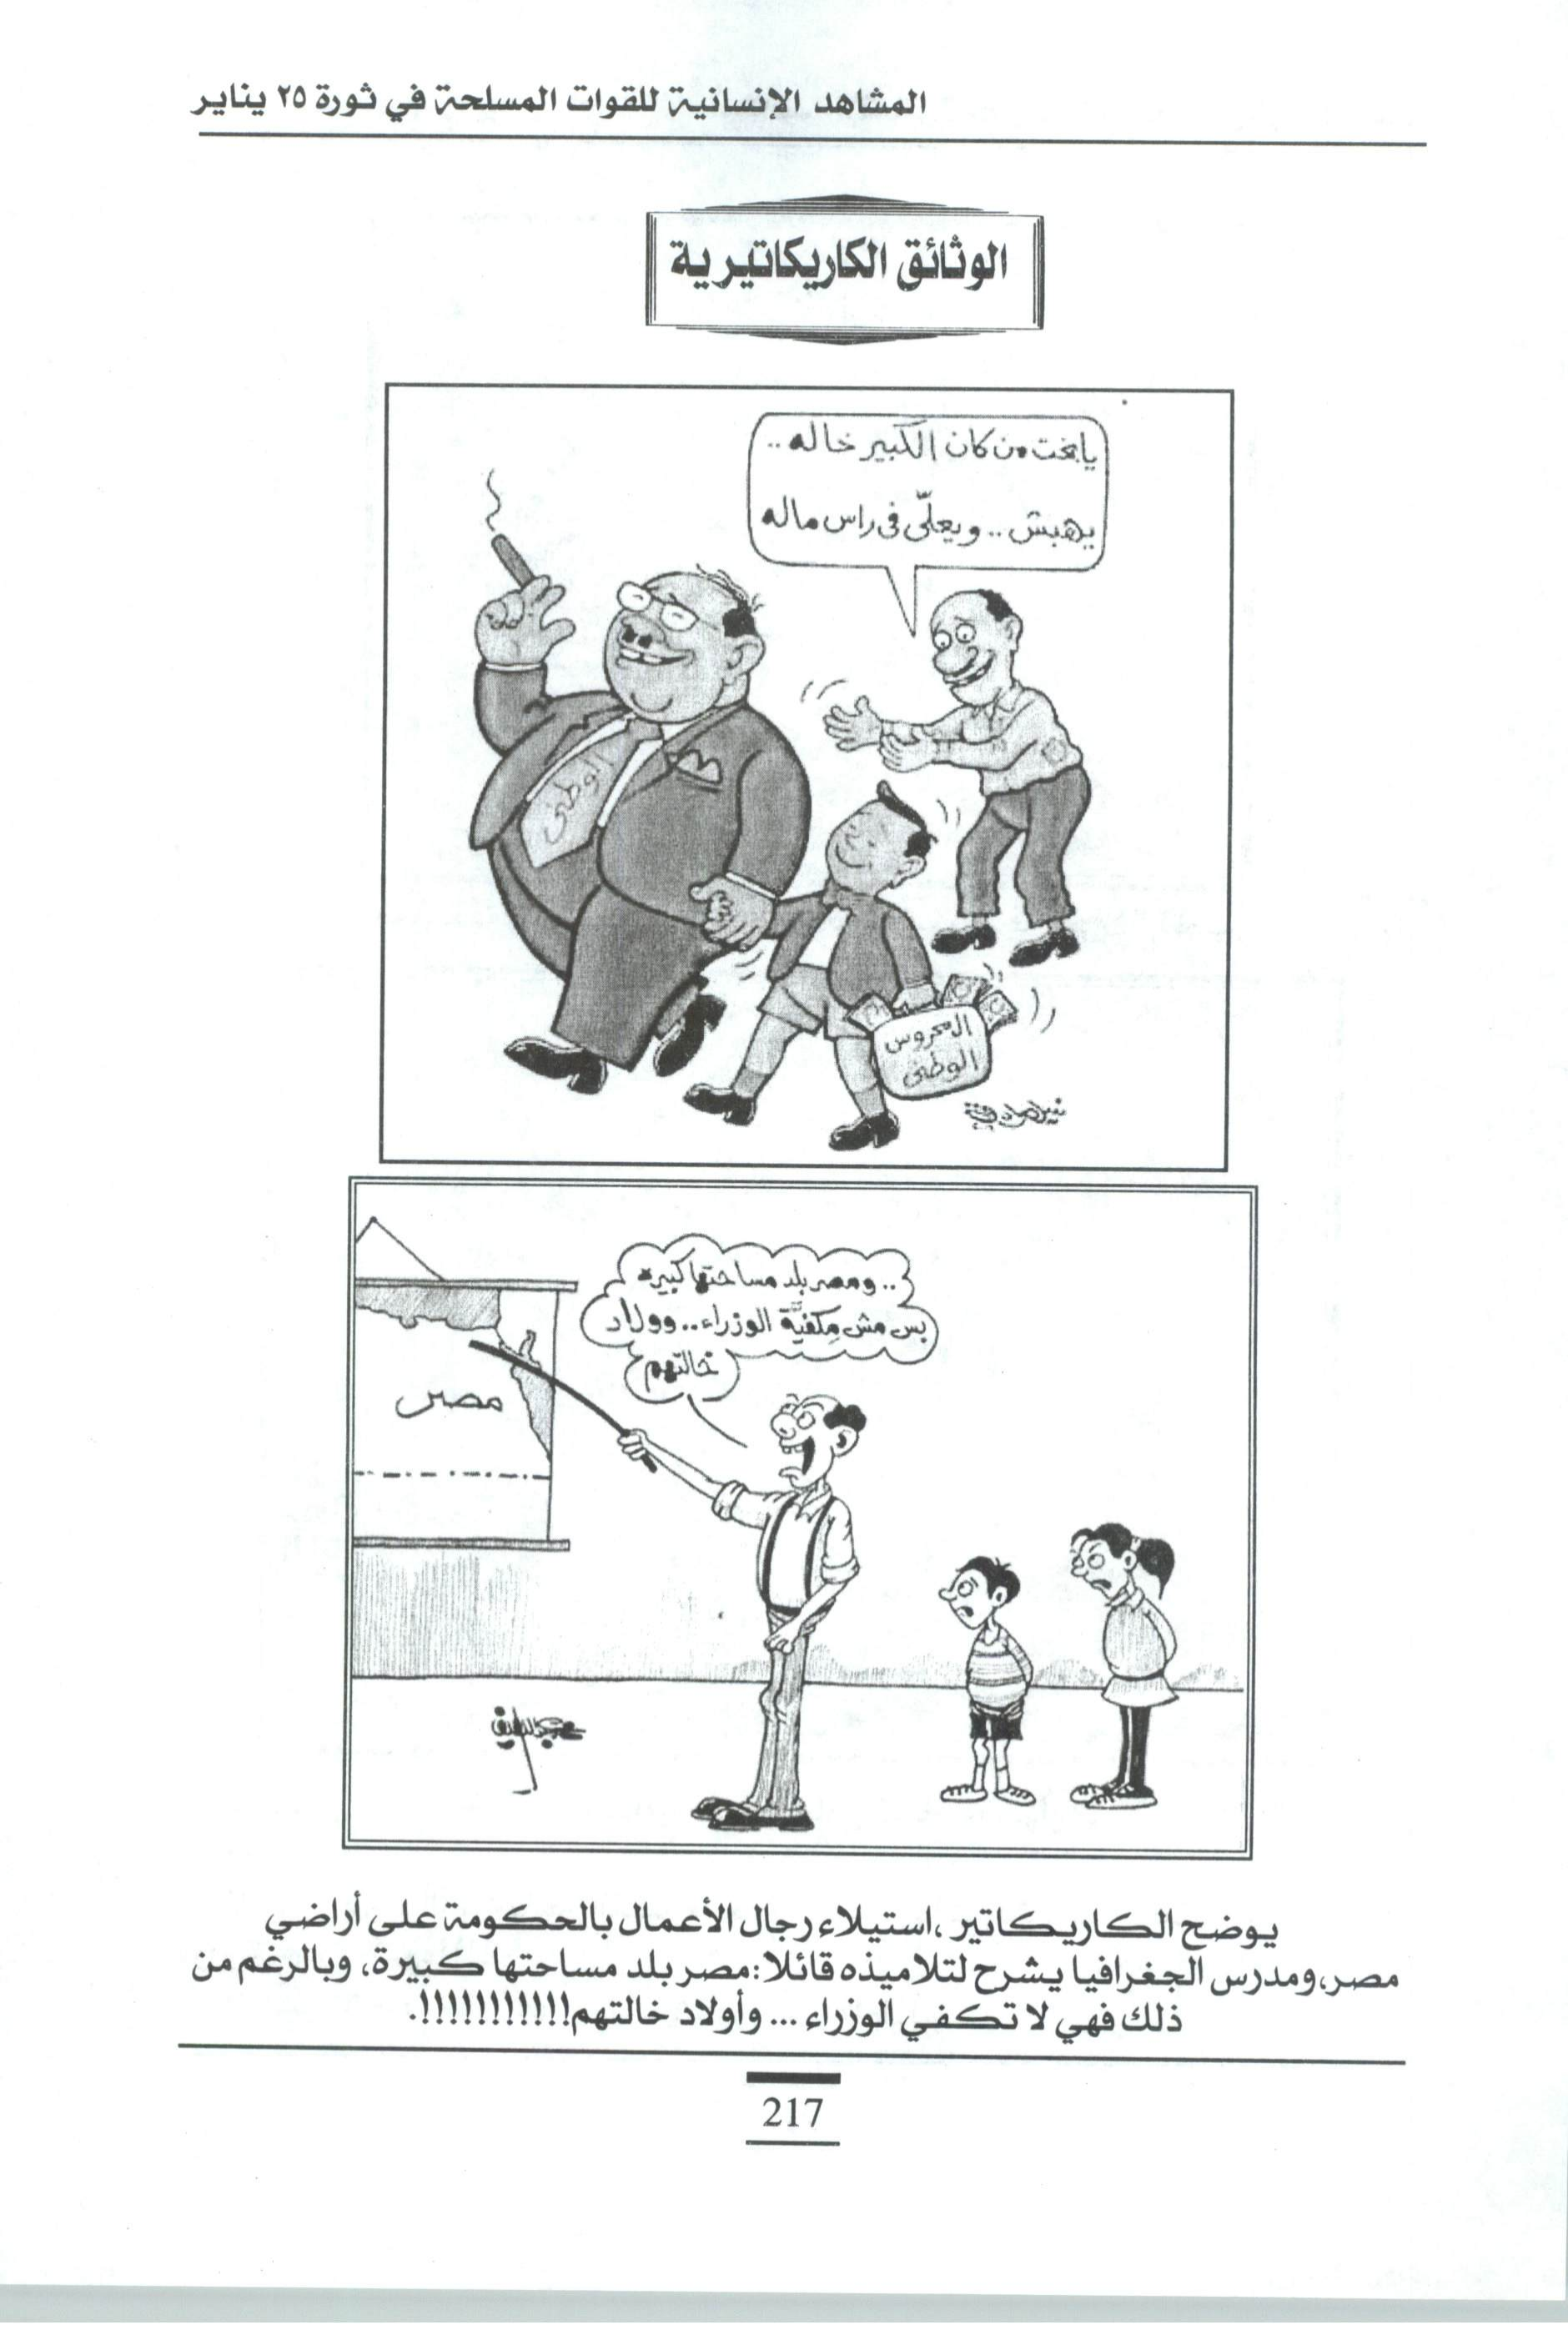 المشاهد الإنسانية للقوات المسلحة في ثورة ٢٥ يناير
الوثائق الكاريكاتيرية
يا بخت من كان الكبير خاله ..
يهبش .. ويعلّى فى راس ماله
الوطنى
المحروس
الوطنى
.. ومصر بلد مساحتها كبيره
بس مش مكفيَّة الوزراء .. وولاد
خالتهم
مصر
يوضح الكاريكاتير ،استيلاء رجال الأعمال بالحكومة على أراضي
مصر،ومدرس الجغرافيا يشرح لتلاميذه قائلا :مصر بلد مساحتها كبيرة، وبالرغم من
ذلك فهي لا تكفي الوزراء ... وأولاد خالتهم!!!!!!!!!!!!.
217